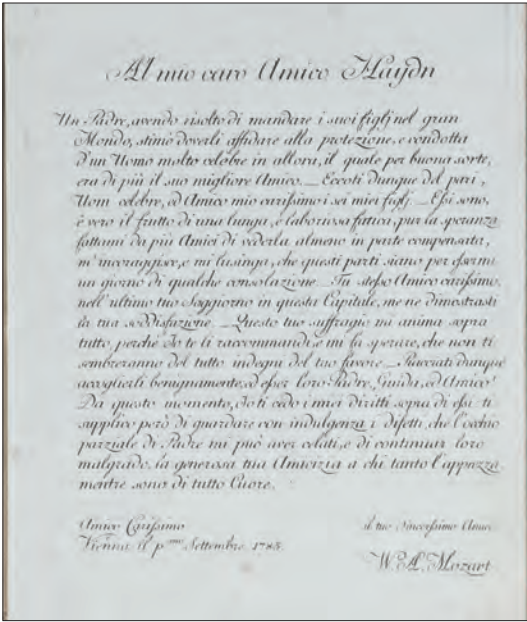 Al mio caro Amico Haydn
Un Padre, avendo risolto di mandare i suoi figlj nel gran
Mondo, stimò doverli affidare alla protezione, e condotta
d'un Uomo molto celebre in allora, il quale per buona sorte,
era di più il suo migliore Amico. — Eccoti dunque del pari,
Uom celebre, ed Amico mio carissimo i sei miei figlj. — Essi sono,
è vero il frutto di una lunga, e laboriosa fatica, pur la speranza
fattami da più Amici di vederla almeno in parte compensata,
m'incoraggisce, e mi lusinga, che questi parti siano per essermi
un giorno di qualche consolazione. — Tu stesso Amico carissimo,
nell'ultimo tuo Soggiorno in questa Capitale, me ne dimostrasti
la tua soddisfazione. — Questo tuo suffragio mi anima sopra
tutto, perchè Io te li raccommandi, e mi fa sperare, che non ti
sembreranno del tutto indegni del tuo favore. — Piacciati dunque
accoglierli benignamente, ed esser loro Padre, Guida, ed Amico!
Da questo momento, Io ti cedo i miei diritti sopra di essi: ti
supplico però di guardare con indulgenza i difetti, che l'occhio
parziale di Padre mi può aver celati, e di continuar loro
malgrado, la generosa tua Amicizia a chi tanto l'apprezza,
mentre sono di tutto Cuore.
Amico Carissimo il tuo Sincerissimo Amico
Vienna il p.mo Settembre 1785.
W. A. Mozart